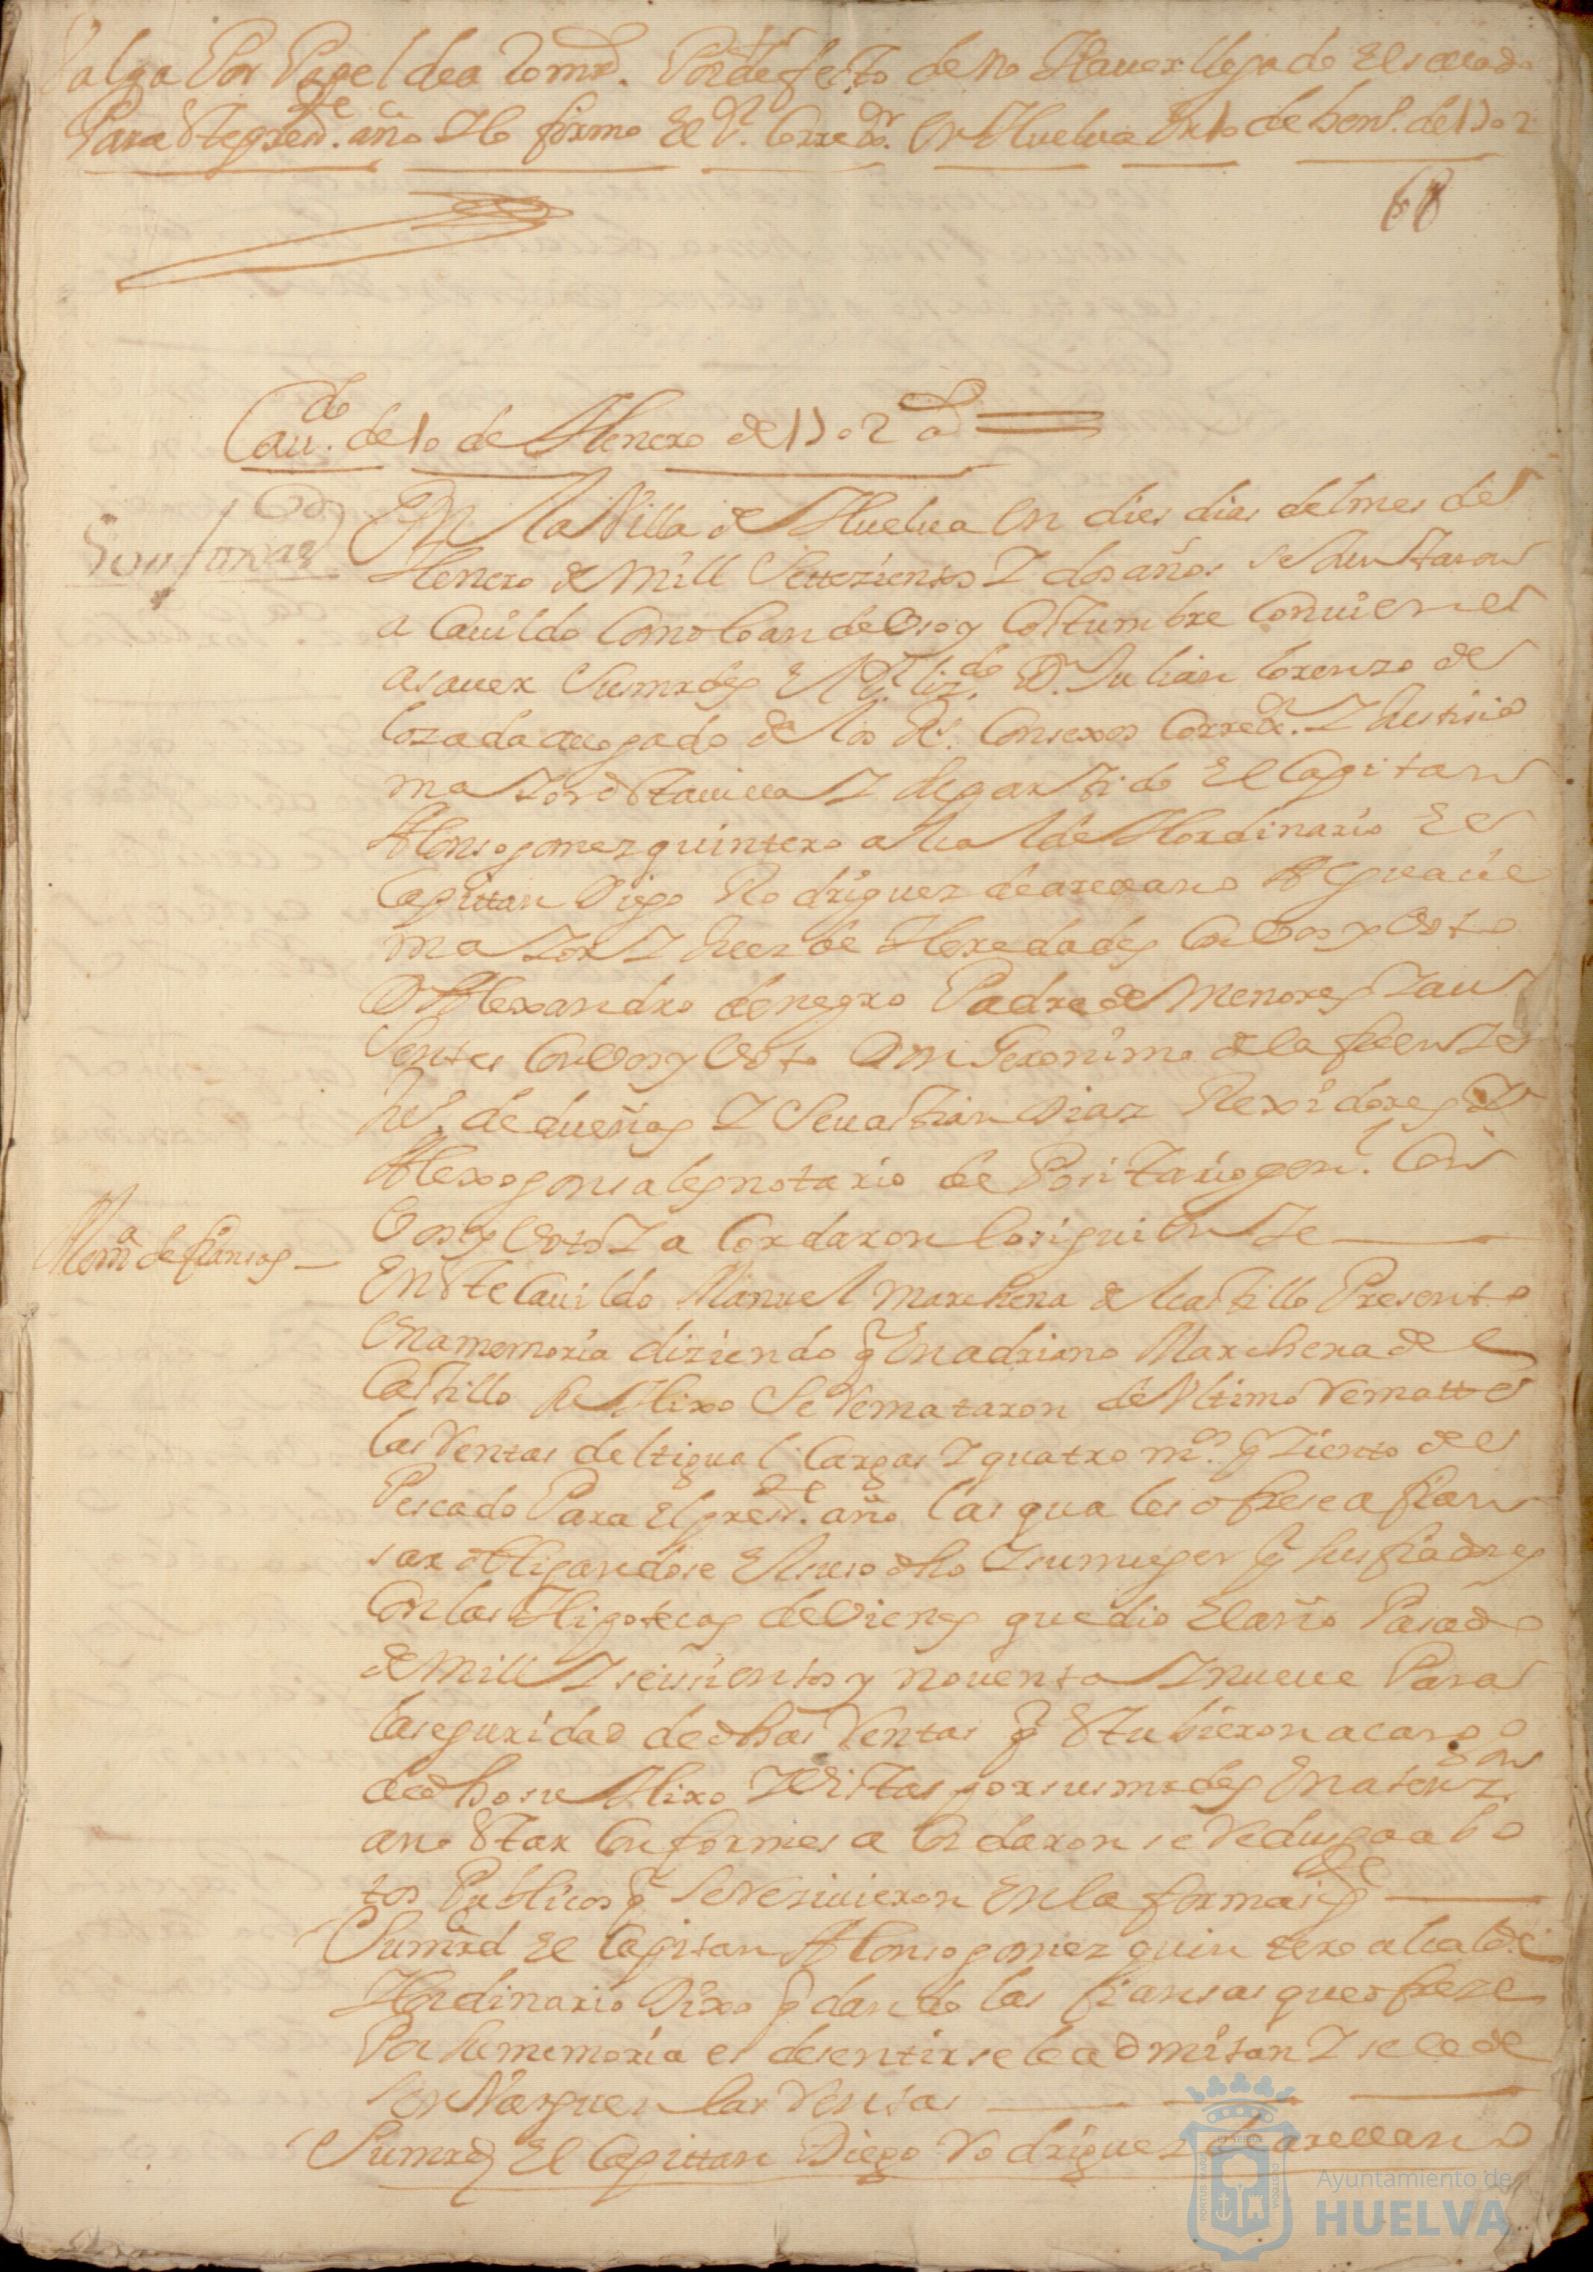 Valga Por Papel de a 20 mrs. Por defecto de no Hauer llegado El sellado
Para Ste preste. año Y lo firmo El Sr. Corredor. En Huelva En 10 de hen.º de 1702
68
Cau.do de 10 de Henero de 1702 as
En la Villa de Huelua En dies dias del mes de
Henero de Mill Settezientos Y dos años se Juntaron
a Cauildo Como lo an de Vso y Costumbre Conuiene
asauer Sus mrdes El Sr. Lizdo. Dn. Julian lorenzo de
lozada auogado de los Rs. Consexos Corredor. Y Justisia
mayor de Sta uilla Y Su partido El Capitan
Alonso gomez quintero alcalde Hordinario El
Capittan Diego Rodriguez de arellano Alguacil
mayor Y Juez de Heredades Con Vos y Voto
D Alexandro de negro Padre de Menores Y au
sentes Con Vos y Voto Don Geronimo de la fuente
de dueñas Y Seuastian Diaz Rexidores Y
Alexo gonsales notario de Positario gen.l Con
Vos y Voto Y a Cordaron lo siguiente
Mem.a de fiansas
En Ste Cauildo Manuel Marchena del Castillo Presento
Una memoria diziendo q En adriano Marchena del
Castillo Su Hixo Se Remataron de Vltimo Remate
las Rentas del tigual Cargas Y quatro mrs. q Ziento del
Pescado Para El preste. año las quales ofrese a fian
sar obligandose El suso dho Y su muger q sus fiadores
Con las Hipotecas de Vienes que dio El año Pasado
de Mill Y seisientos y nouenta Y nueue Para
la seguridad de dhas Rentas q Stubieron a cargo
de dho su Hixo Y Vistas por sus mrdes En atenzon
a no Star Conformes a Cordaron se Redusga a bo
tos Publicos q Se Reziuieron En la forma sigte
Su mrd El Capitan Alonso gomez quintero alcalde
Hordinario Dixo q dando las fiansas que ofreze
Por Su memoria es de sentir se le admitan Y se le de
las Rentas
Su mrd El Capittan Diego Rodriguez de arellano
Ayuntamiento de
HUELVA